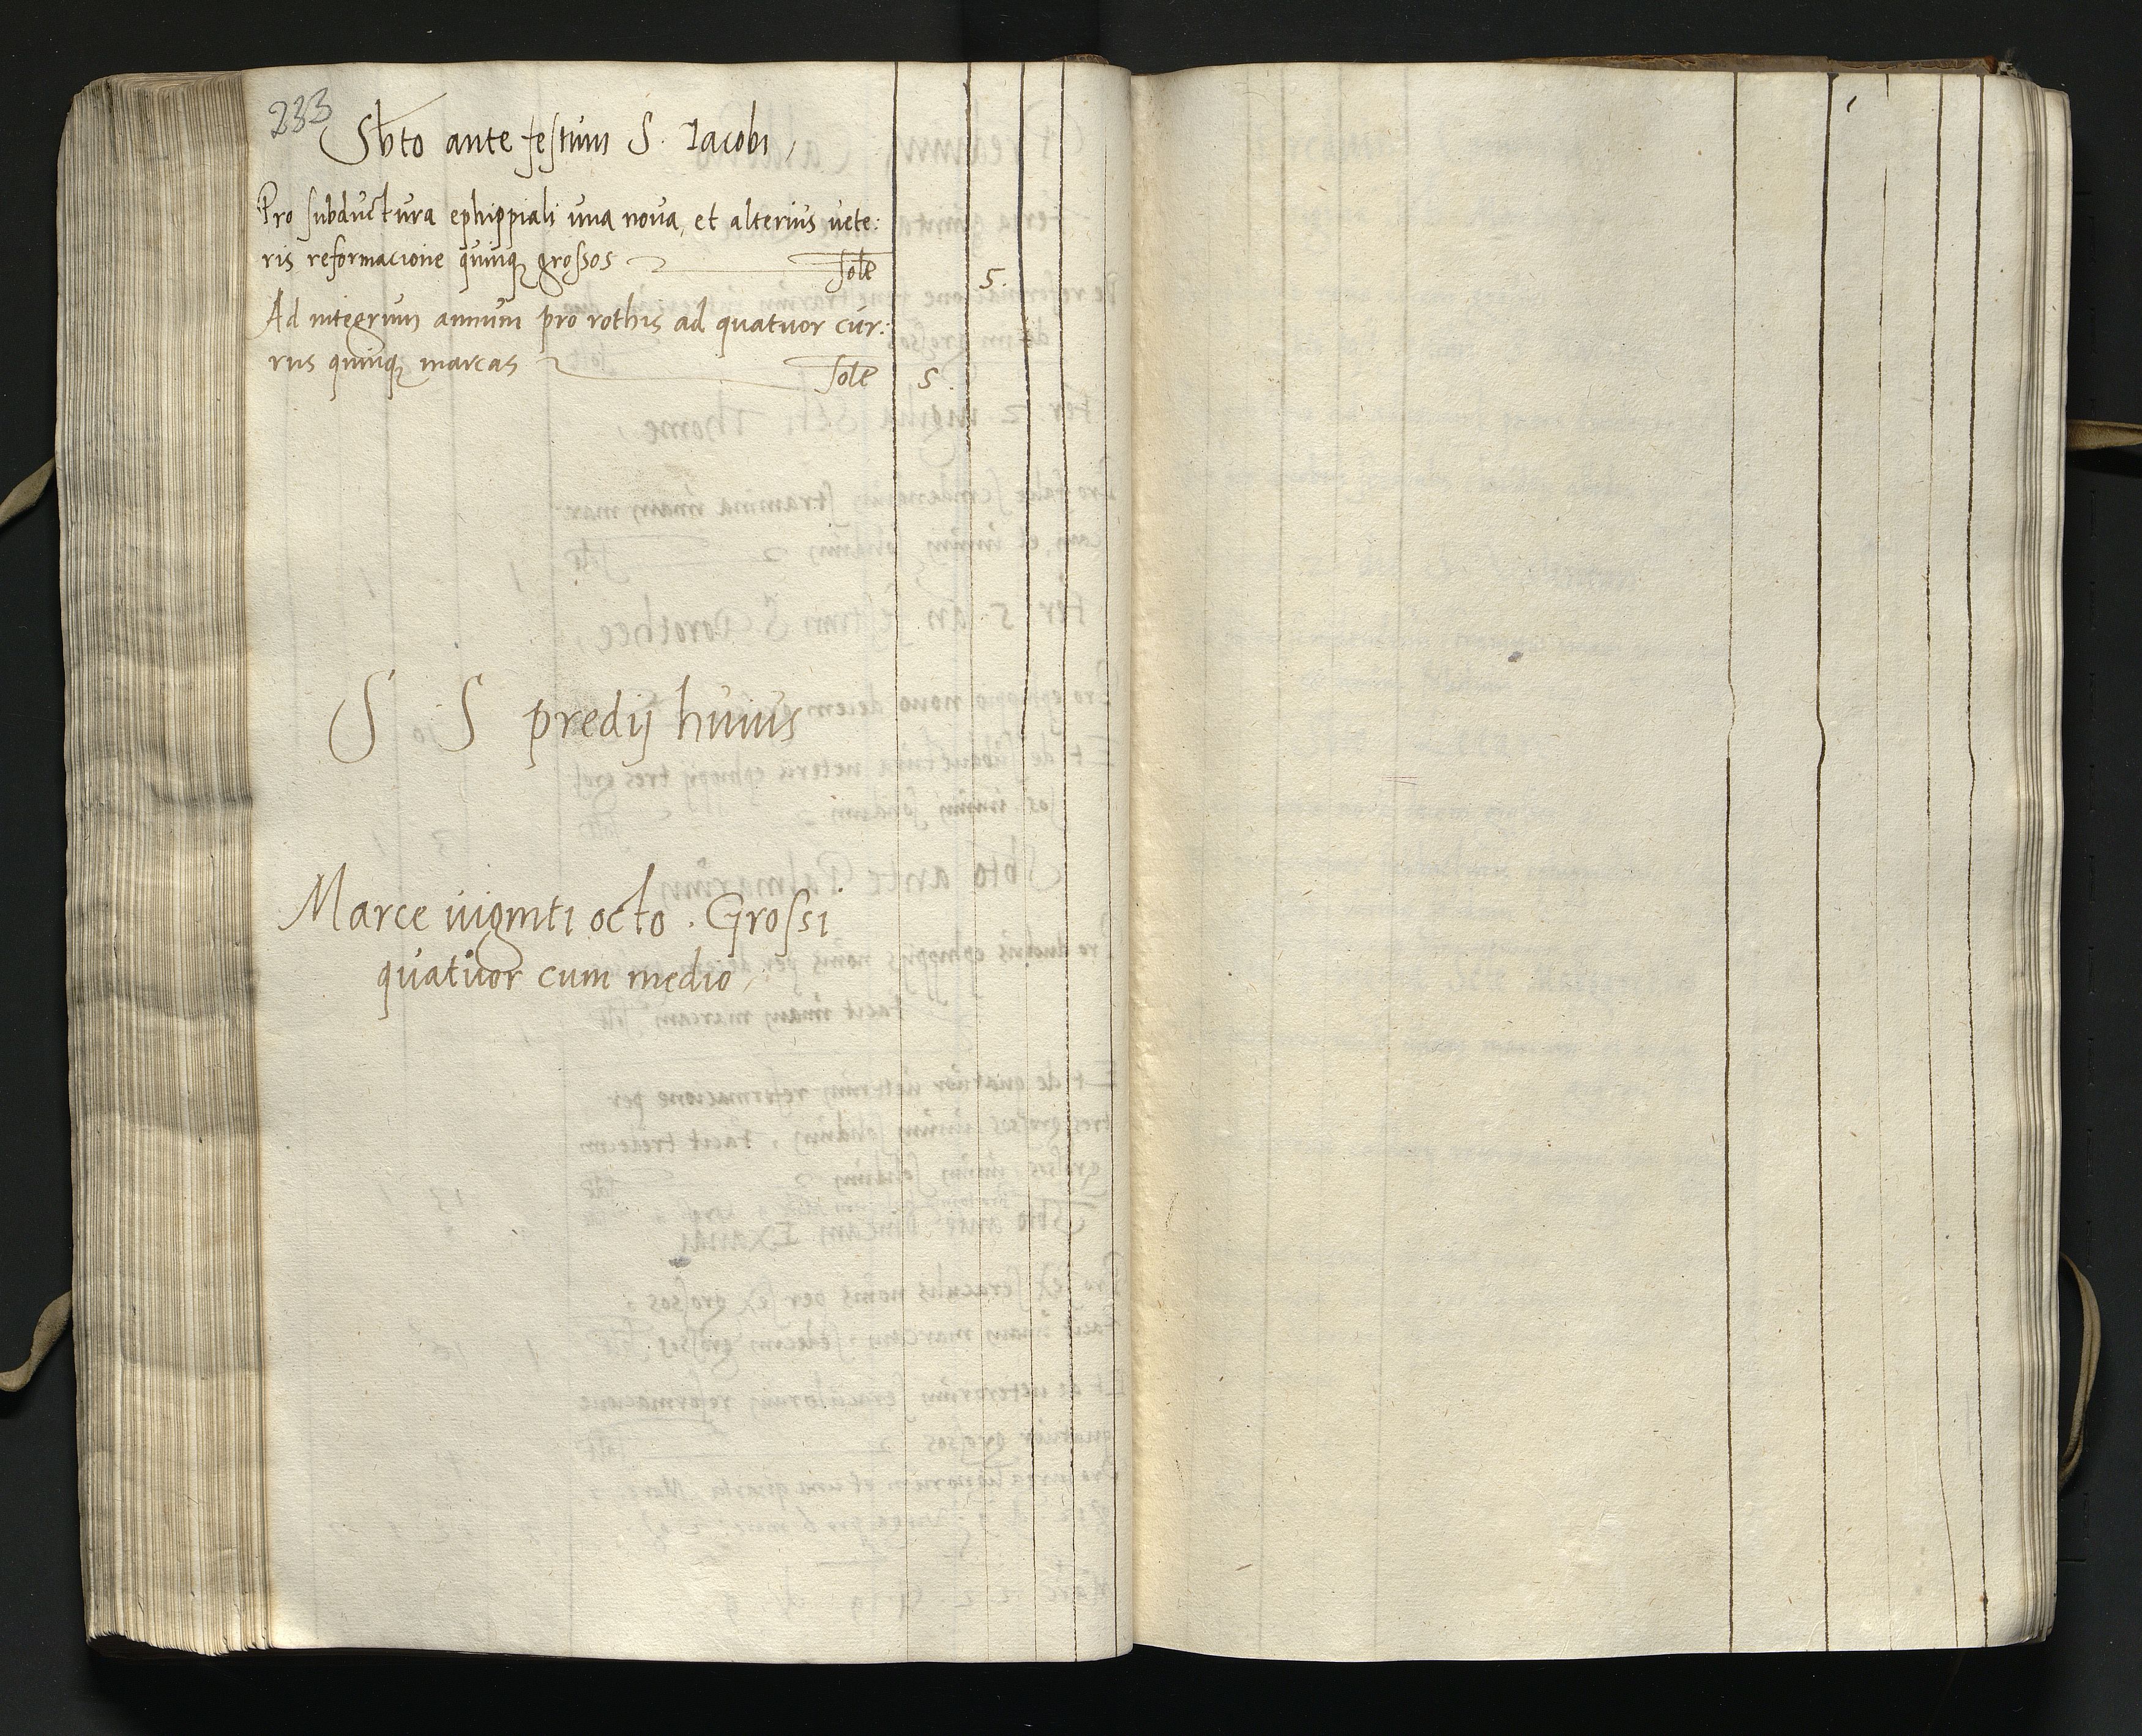 233
Sbto ante festum S. Iacobi,
Pro subductura ephippiali una nova, et alterius vete:
ris reformacione quinq grossos solt 5.
Ad integrum annum pro rothis ad quatuor cur:
rus quinq marcas solt 5.
S S predij huius
Marce viginti octo . Grossi
quatuor cum medio,